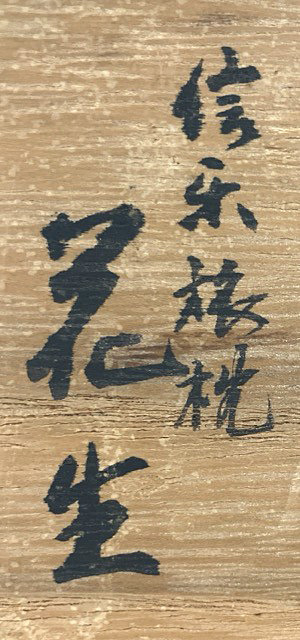 信楽旅枕
花生